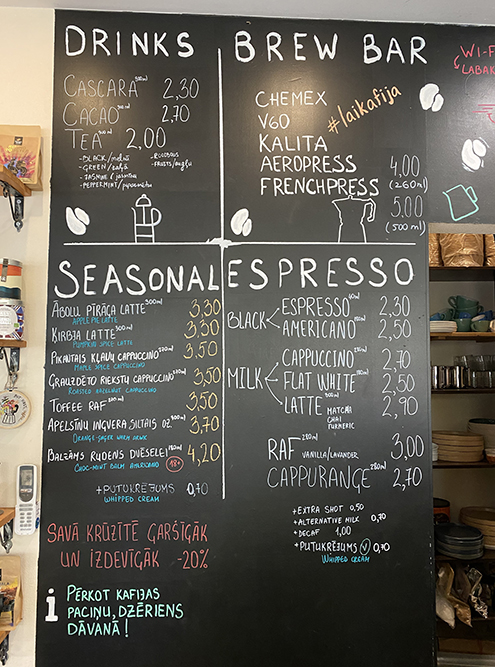 DRINKS
CASCARA 300ml 2,30
CACAO 300ml 2,70
TEA 300ml 2,00
-BLACK/melnā
-GREEN/zaļā
-JASMINE/jasmīnu
-PEPPERMINT/piparmētru
-ROOIBOSS
-FRUITS/augļu
BREW BAR
CHEMEX
V60
KALITA
AEROPRESS
FRENCHPRESS
#laikafija
4,00
(260ml)
5.00
(500 ml)
WI-F
LABAK
SEASONAL
ĀBOLU PĪRĀGA LATTE 300ml 3,30
APPLE PIE LATTE
ĶIRBJA LATTE 300ml 3,50
PUMPKIN SPICE LATTE
PIKANTAIS KĻAVU CAPPUCCINO 3,50
MAPLE SPICE CAPPUCCINO
GRAUZDĒTO RIEKSTU CAPPUCCINO 3,50
ROASTED HAZELNUT CAPPUCCINO
TOFFEE RAF 3,50
APELSĪNU INGVERA SILTAIS DZ. 3,70
ORANGE-GINGER WARM DRINK
BALZĀMS RUDENS DVĒSELEI 4,20
CHOC-MINT BALM AMERICANO 18+
+PUTUKRĒJUMS 0,70
WHIPPED CREAM
SAVĀ KRŪZĪTĒ GARŠĪGĀK
UN IZDEVĪGĀK -20%
i PĒRKOT KAFIJAS
PACIŅU, DZĒRIENS
DĀVANĀ!
ESPRESSO
BLACK
ESPRESSO 2,30
AMERICANO 2,50
MILK
CAPPUCCINO 2,70
FLAT WHITE 2,50
LATTE 300ml 2,90
MATCHA
CHAI
TURMERIC
RAF 280ml VANILLA/LAVANDER 3,00
CAPPURANGE 280ml 2,70
+EXTRA SHOT 0,50
+ALTERNATIVE MILK 0,70
+DECAF 1,00
+PUTUKRĒJUMS V 0,70
WHIPPED CREAM